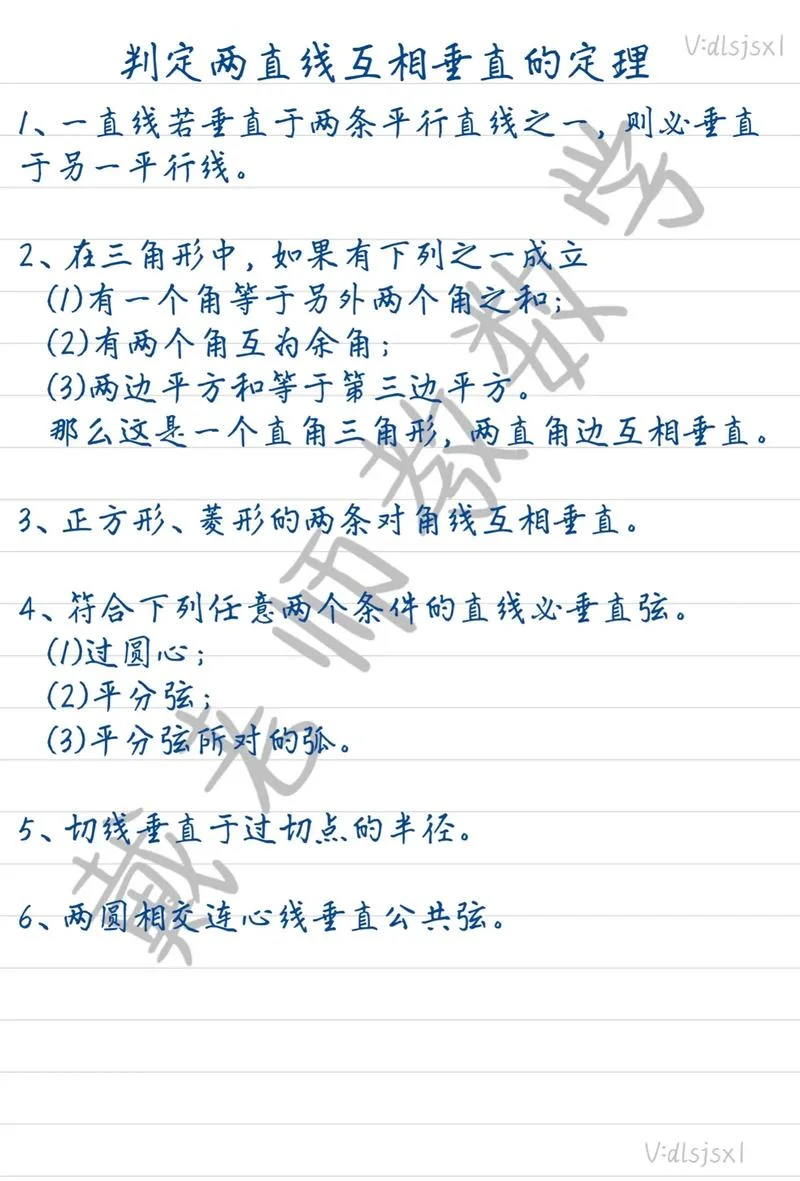 V:dlsjsxl
判定两直线互相垂直的定理
1、一直线若垂直于两条平行直线之一，则必垂直
于另一平行线。
2、在三角形中，如果有下列之一成立
(1)有一个角等于另外两个角之和；
(2)有两个角互为余角；
(3)两边平方和等于第三边平方。
那么这是一个直角三角形，两直角边互相垂直。
3、正方形、菱形的两条对角线互相垂直。
4、符合下列任意两个条件的直线必垂直弦。
(1)过圆心；
(2)平分弦；
(3)平分弦所对的弧。
5、切线垂直于过切点的半径。
6、两圆相交连心线垂直公共弦。
戴老师教数学
V:dlsjsxl